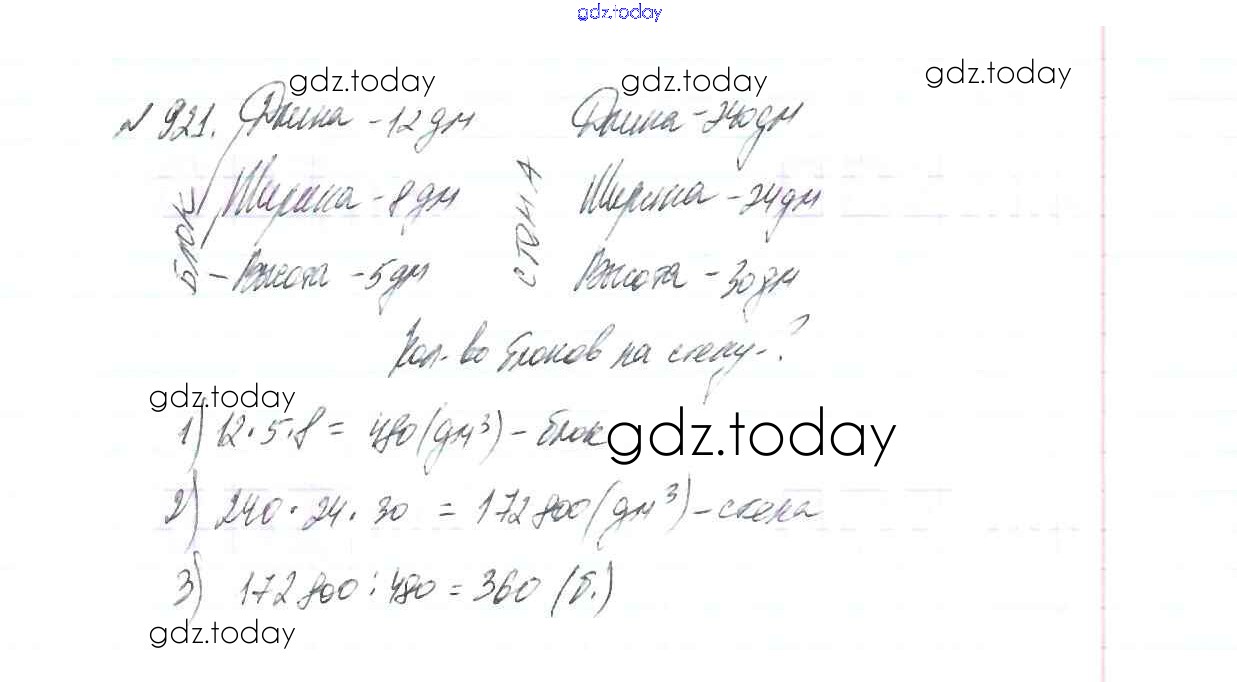 gdz.today
gdz.today gdz.today gdz.today
№ 921. Длина - 12 дм Длина - 240 дм
БЛОК Ширина - 8 дм СТЕНА Ширина - 24 дм
- Высота - 5 дм Высота - 30 дм
Кол-во блоков на стену - ?
gdz.today
1) 12 · 5 · 8 = 480 (дм³) - блок
gdz.today
2) 240 · 24 · 30 = 172 800 (дм³) - стена
3) 172 800 : 480 = 360 (б.)
gdz.today